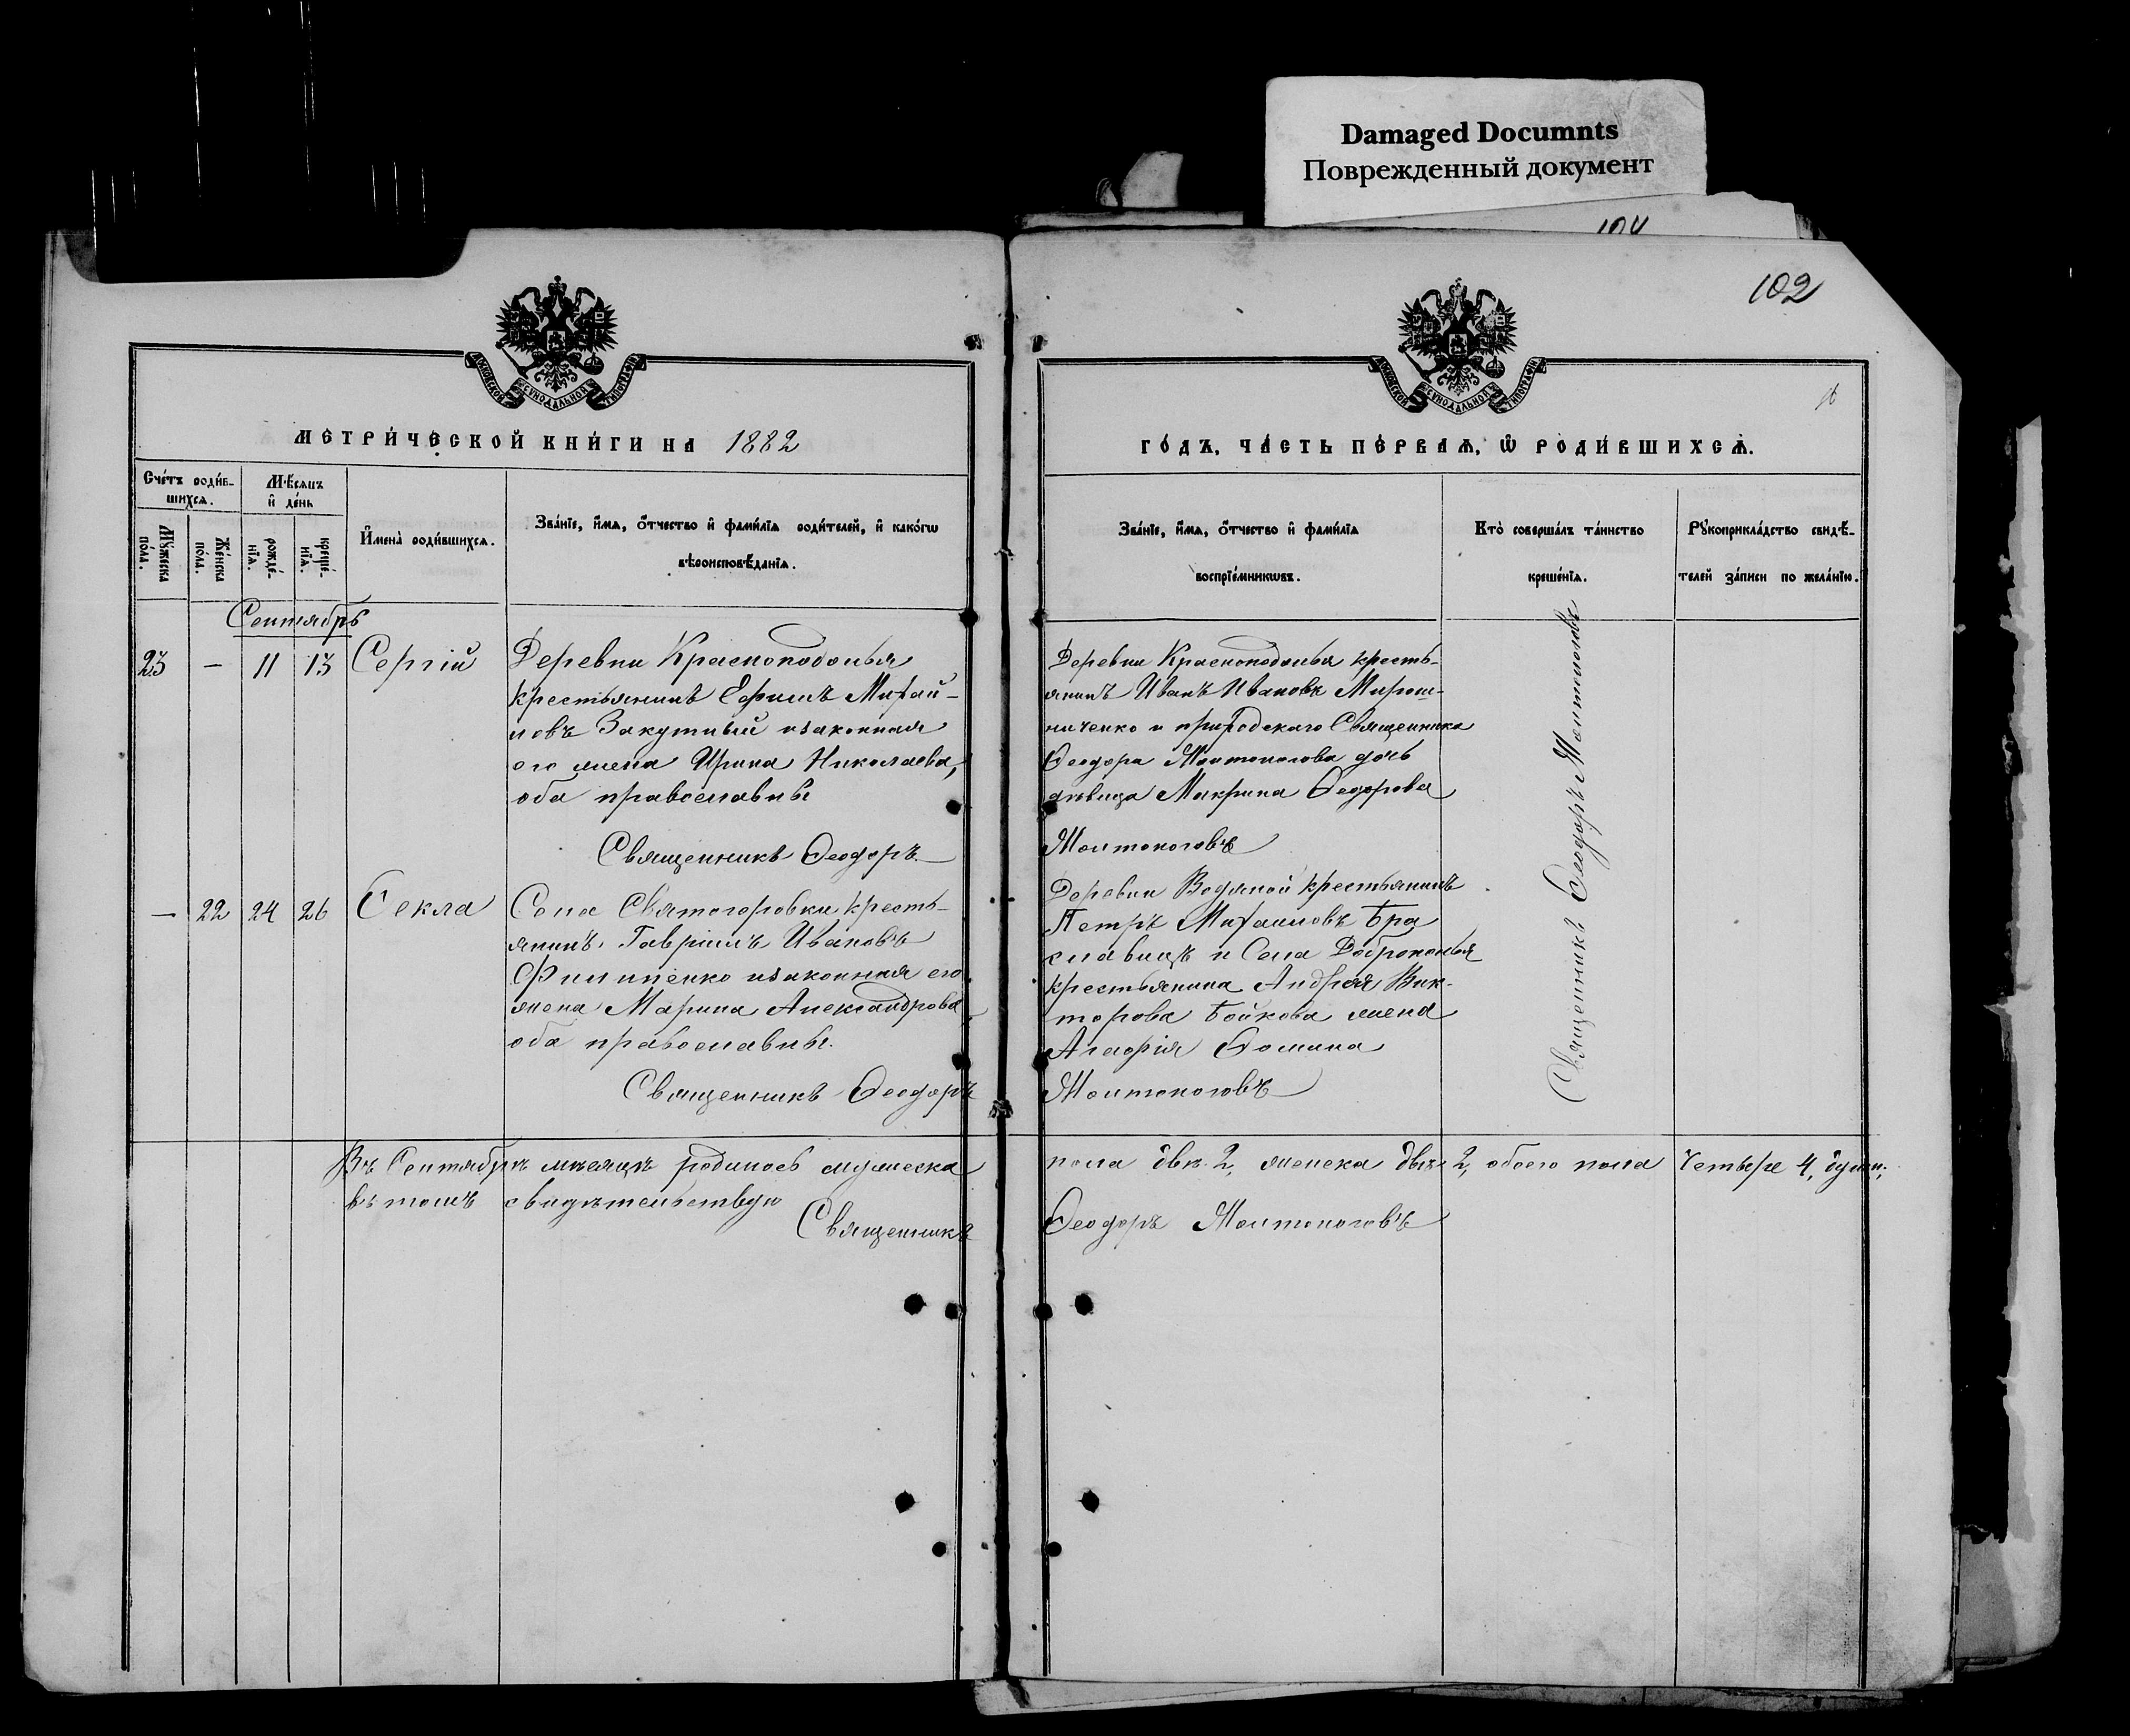 Damaged Documnts
Поврежденный документ
104
102
МОСКОВСКОЙ СѴНОДАЛЬНОЙ ТИПОГРАФІИ
МОСКОВСКОЙ СѴНОДАЛЬНОЙ ТИПОГРАФІИ
МЕТРИ́ЧЕСКОЙ КНИ́ГИ НА 1882
ГО́ДЪ, ЧА́СТЬ ПЕ́РВАѦ, Ѿ РОДИ́ВШИХСѦ.
Сче́тъ роди́в-
шихсѧ.
Мꙋ́жеска
по́ла.
Же́нска
по́ла.
Мѣ́сѧцъ
и҆ де́нь
рожде́-
нїѧ.
креще́-
нїѧ.
И҆мена̀ роди́вшихсѧ.
Зва́нїе, и҆́мѧ, ѻ҆́тчество и҆ фами́лїѧ роди́телей, и҆ како́гѡ
вѣроисповѣ́данїѧ.
Зва́нїе, и҆́мѧ, ѻ҆́тчество и҆ фами́лїѧ
воспрїе́мникѡвъ.
Кто̀ соверша́лъ та́инство
креще́нїѧ.
Рꙋкоприкла́дство свидѣ́-
телей за́писи по жела́нїю.
Сентябрь
23 — 11 13 Сергій
Деревни Красноподолья
крестьянинъ Ефимъ Михай-
ловъ Закутный изаконная
его жена Ирина Николаева,
оба православны
Священникъ Ѳеодоръ
Деревни Красноподолья кресть-
янинъ Иванъ Ивановъ Мирош-
ниченко и приходскаго Священника
Ѳеодора Молтоногова дочь
дѣвица Макрина Ѳедорова
Молтоноговъ
— 22 24 26 Ѳекла
Села Святогоровки кресть-
янинъ Гавріилъ Ивановъ
Филипенко изаконная его
жена Марина Александрова
оба православны.
Священникъ Ѳеодоръ
Деревни Водяной крестьянинъ
Петръ Михаиловъ Бра
славецъ и Села Доброполья
крестьянина Андрея Вик-
торова Бойкова жена
Агафія Ѳомина
Молтоноговъ
Священникъ Ѳеодоръ Молтоноговъ
Въ Сентябрѣ мѣсяцѣ родилось мужеска пола двѣ 2, женска двѣ 2, обоего пола Четыре 4, души;
въ томъ свидѣтельствую
Священникъ Ѳеодоръ Молтоноговъ